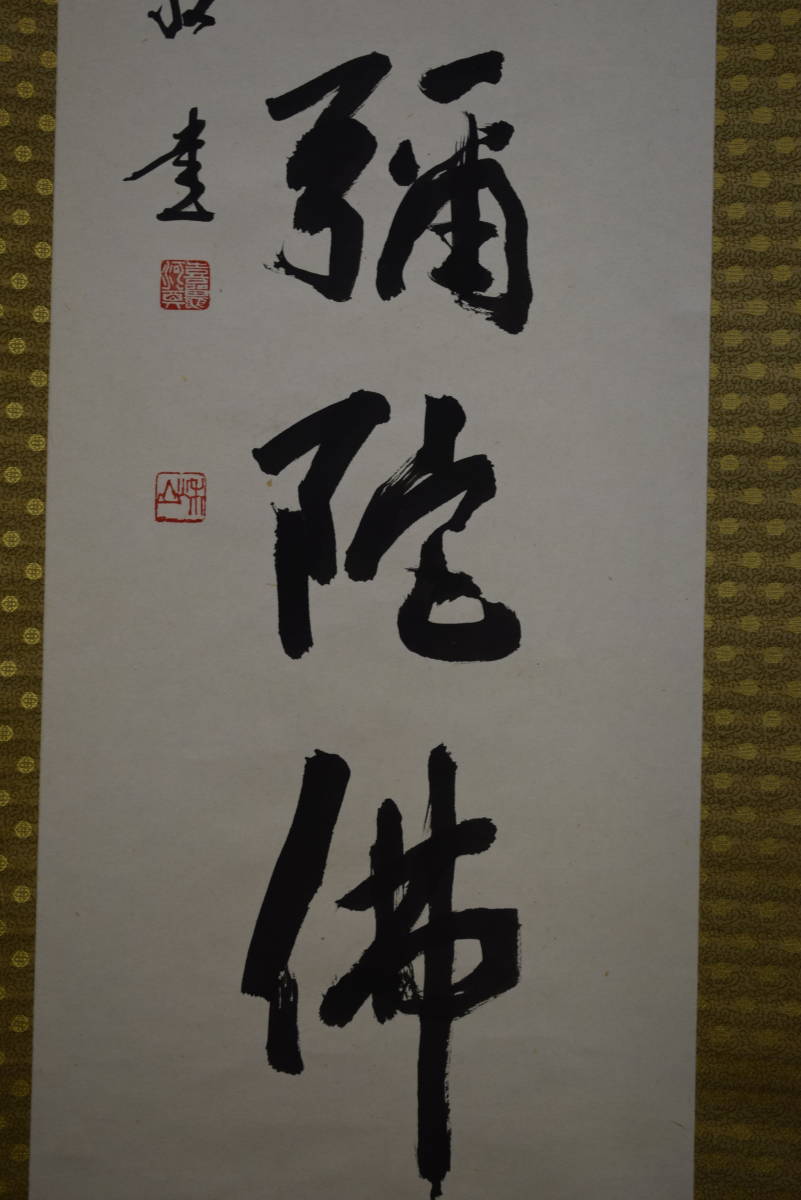 彌陀佛
書